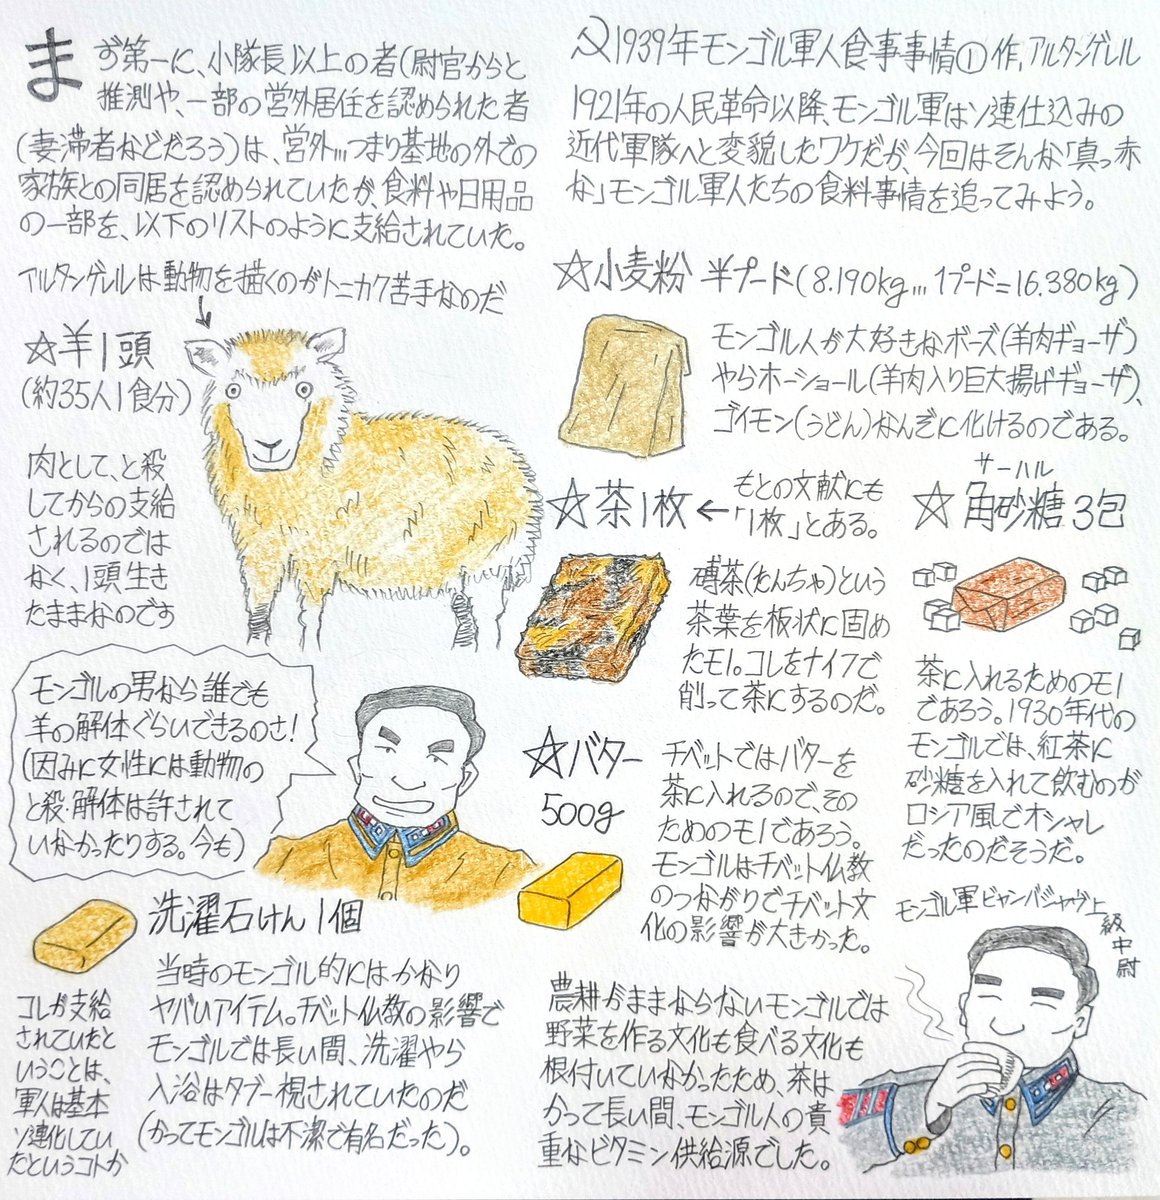 ☭1939年モンゴル軍人食事事情① 作,アルタンゲレル
1921年の人民革命以降、モンゴル軍はソ連仕込みの
近代軍隊へと変貌したワケだが、今回はそんな「真っ赤
な」モンゴル軍人たちの食料事情を追ってみよう。
まず第一に、小隊長以上の者(尉官からと
推測や、一部の営外居住を認められた者
(妻滞者などだろう)は、営外…つまり基地の外での
家族との同居を認められていたが、食料や日用品
の一部を、以下のリストのように支給されていた。
アルタンゲレルは動物を描くのがトニカク苦手なのだ
☆羊1頭
(約35人1食分)
肉として、と殺
してからの支給
されるのでは
なく、1頭生き
たままなのです
☆小麦粉 半プード(8.190kg…1プード=16.380kg)
モンゴル人が大好きなボーズ(羊肉ギョーザ)
やらホーショール(羊肉入り巨大揚げギョーザ)、
ゴイモン(うどん)なんぞに化けるのである。
☆茶1枚←
もとの文献にも
「1枚」とある。
磚茶(たんちゃ)という
茶葉を板状に固め
たモノ。コレをナイフで
削って茶にするのだ。
サーハル
☆角砂糖3包
茶に入れるためのモノ
であろう。1930年代の
モンゴルでは、紅茶に
砂糖を入れて飲むのが
ロシア風でオシャレ
だったのだそうだ。
モンゴルの男なら誰でも
羊の解体ぐらいできるのさ!
(因みに女性には動物の
と殺・解体は許されて
いなかったりする。今も)
☆バター
500g
チベットではバターを
茶に入れるので、その
ためのモノであろう。
モンゴルはチベット仏教
のつながりでチベット文
化の影響が大きかった。
洗濯石けん1個
当時のモンゴル的にはかなり
ヤバいアイテム。チベット仏教の影響で
モンゴルでは長い間、洗濯やら
入浴はタブー視されていたのだ
(かつてモンゴルは不潔で有名だった)。
コレが支給
されていたと
いうことは、
軍人は基本
ソ連化してい
たというコトか
モンゴル軍ビャンバジャヴ上
級中尉
農耕がままならないモンゴルでは
野菜を作る文化も食べる文化も
根付いていなかったため、茶は
かつて長い間、モンゴル人の貴
重なビタミン供給源でした。